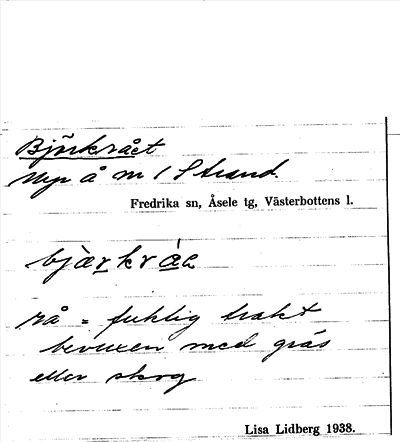 Björkrået
Myr å m / Strand.
Fredrika sn, Åsele tg, Västerbottens l.
bjærkråa
rå = fuktig trakt
bevuxen med gräs
eller skog
Lisa Lidberg 1938.